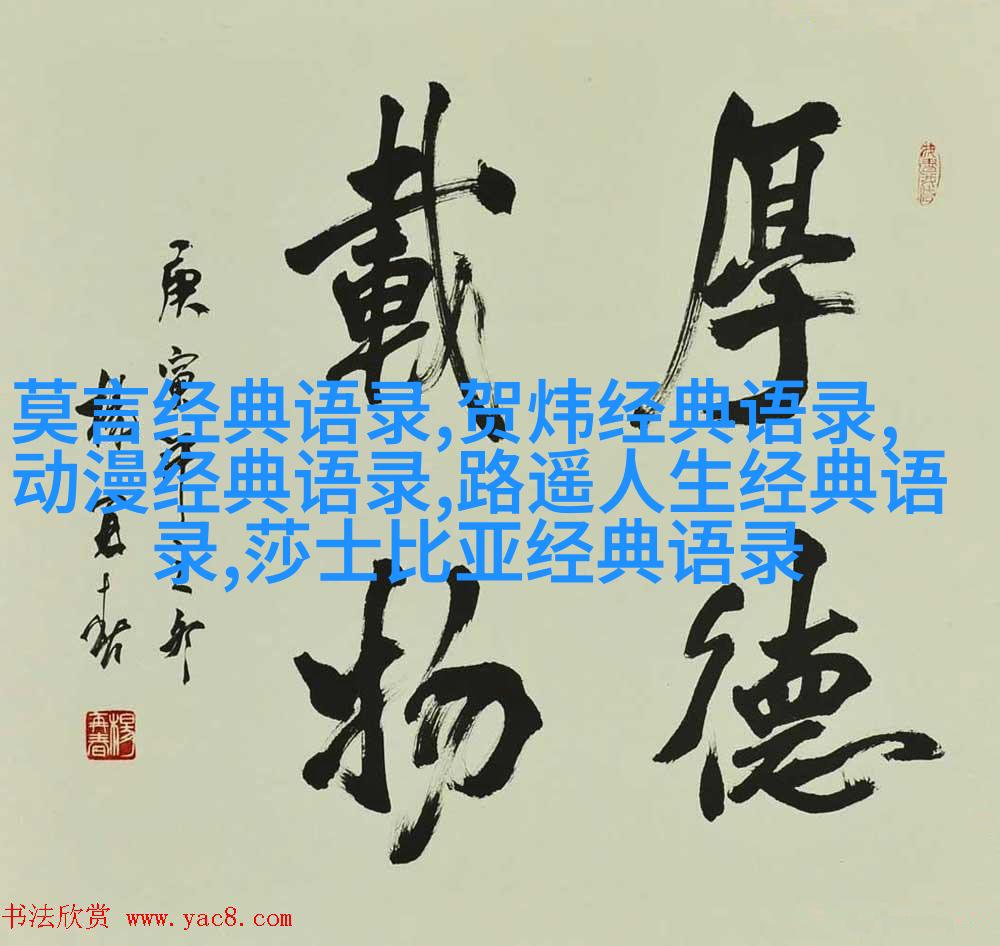 厚德
載物
庚寅年之卯
楊再春
楊再春
莫言经典语录,贺炜经典语录,
动漫经典语录,路遥人生经典语
录,莎士比亚经典语录
书法欣赏 www.yac8.com